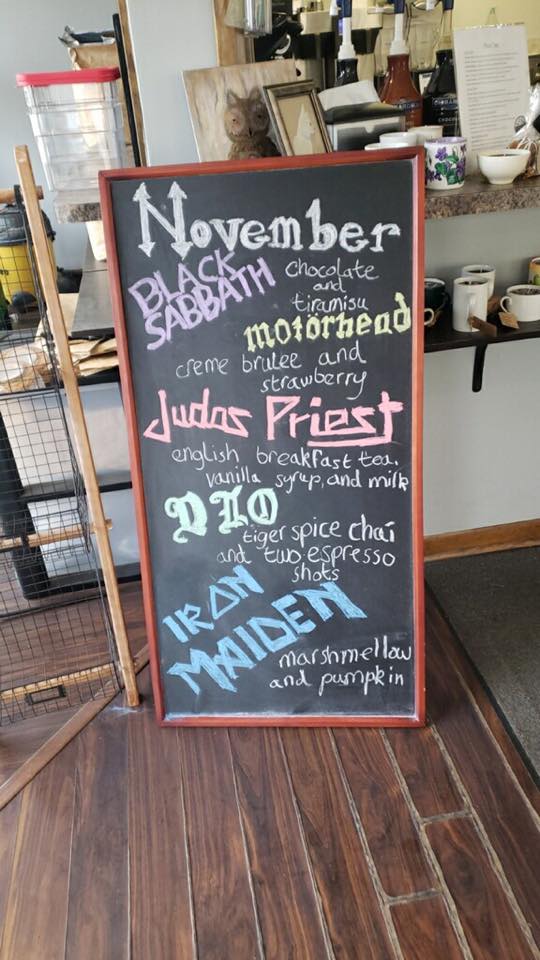 November
BLACK
SABBATH
chocolate
and
tiramisu
motörhead
creme brulee and
strawberry
Judas Priest
english breakfast tea.
vanilla syrup, and milk
DIO
tiger spice chai
and two espresso
shots
IRON
MAIDEN
marshmellow
and pumpkin